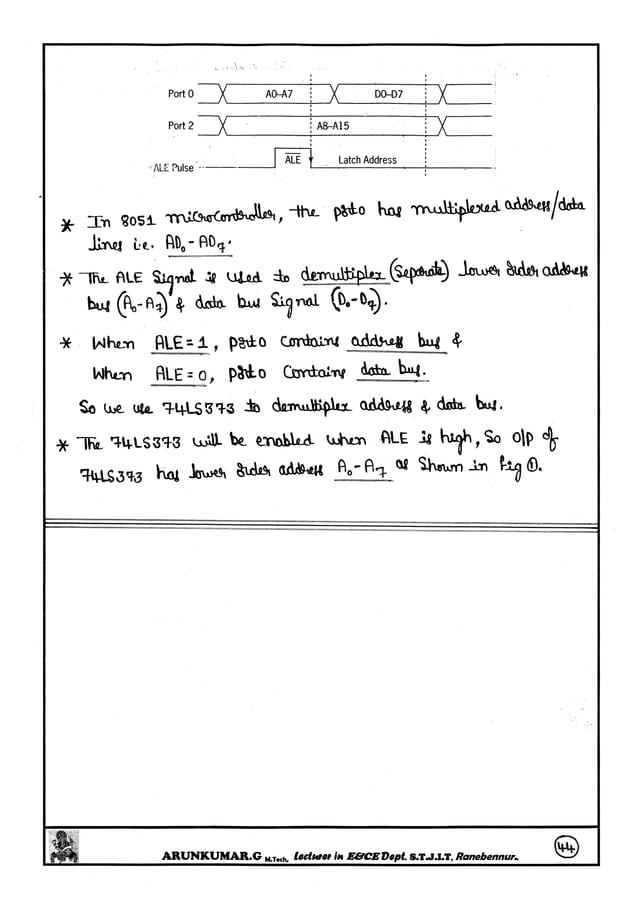 Port 0 A0–A7 D0–D7
Port 2 A8–A15
ALE Pulse ALE Latch Address
* In 8051 microcontroller, the port0 has multiplexed address/data
lines i.e. AD₀ - AD₇.
* The ALE Signal is used to demultiplex (Separate) lower order address
bus (A₀-A₇) & data bus Signal (D₀-D₇).
* When ALE=1, port0 contains address bus &
When ALE=0, port0 contains data bus.
So we use 74LS373 to demultiplex address & data bus.
* The 74LS373 will be enabled when ALE is high, So o/p of
74LS373 has lower order address A₀-A₇ as Shown in Fig ①.
ARUNKUMAR.G M.Tech, Lecturer in E&CE Dept. S.T.J.I.T, Ranebennur.
44